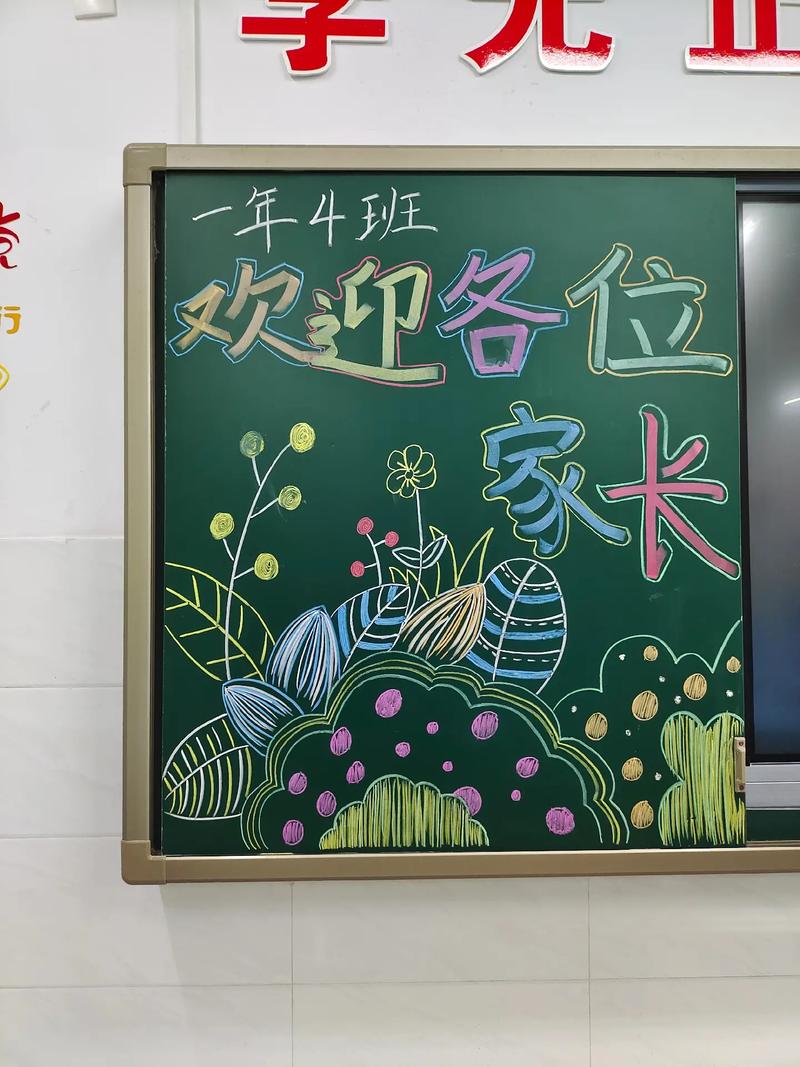 一年4班
欢迎各位
家长
行